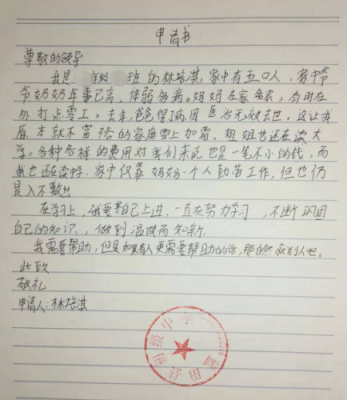 申请书
尊敬的领导
我是 班的林培淇,家中有五口人,家中爷
爷奶奶年事已高,体弱多病。妈妈在家务农,有时在
外打点零工。去年,爸爸得了病因医治无效去世。这让我
本就不富裕的家庭雪上加霜。姐姐也还在读大
学。各种各样的费用对我们来说也是一笔不小的钱,而
我也还在读书。家中仅靠妈妈一个人勤苦工作,但也仍
是入不敷出
在学习上,我要求自己上进,一直在努力学习,不断巩固
自己的知识,做到温故而知新。
我需要帮助,但是如果有人更需要帮助的话,那
此致
敬礼
申请人:林培淇
初级中学